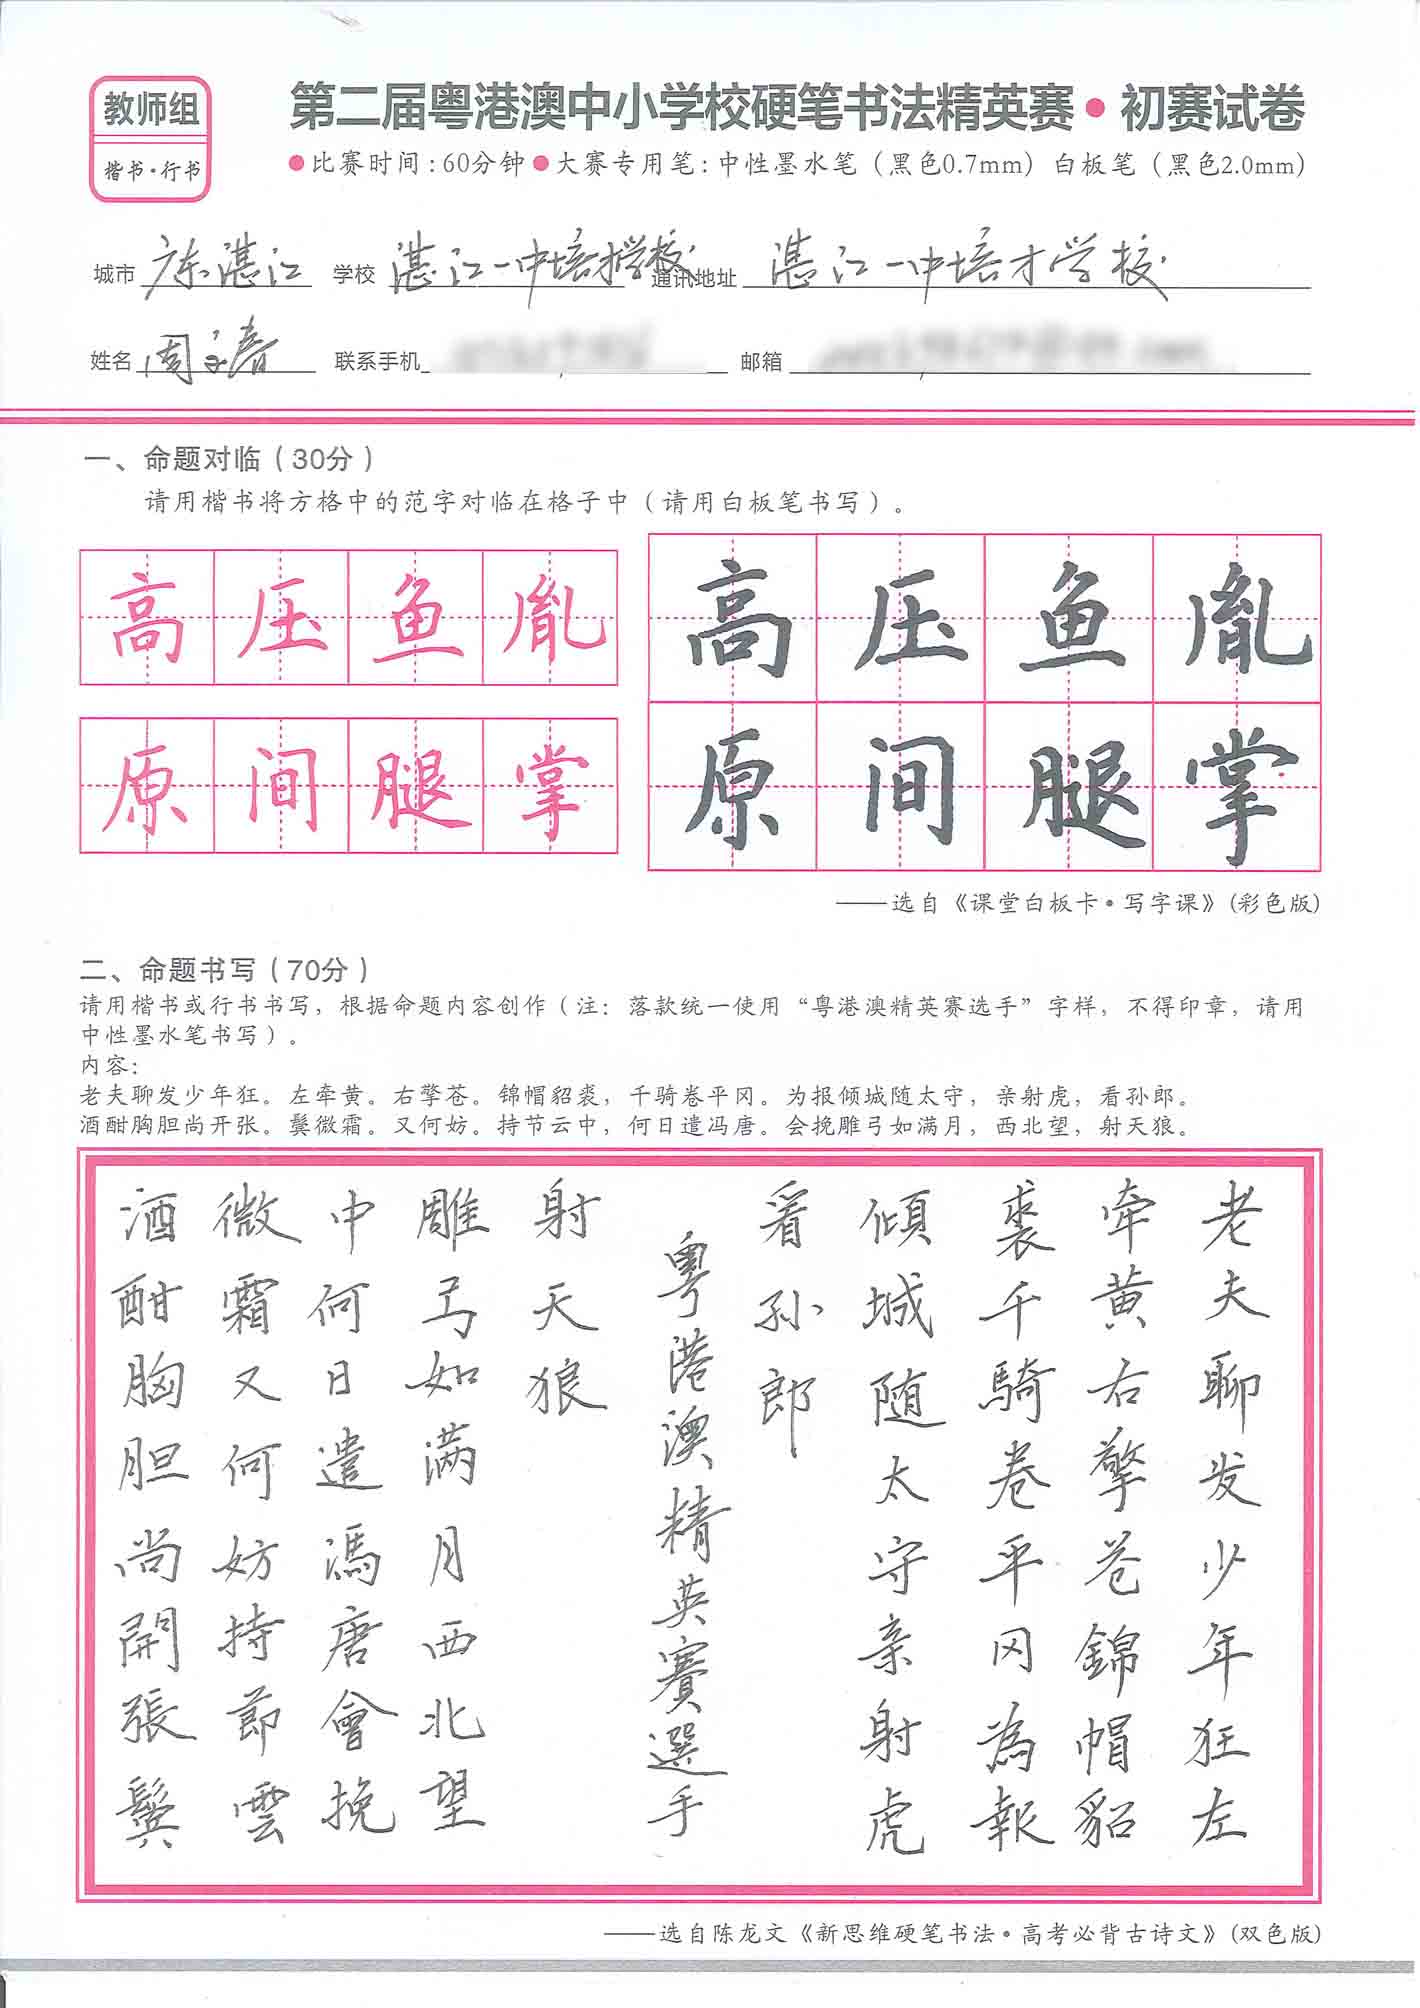 教师组
楷书·行书
第二届粤港澳中小学校硬笔书法精英赛●初赛试卷
●比赛时间:60分钟●大赛专用笔:中性墨水笔（黑色0.7mm）白板笔（黑色2.0mm）
城市 广东湛江 学校 湛江一中培才学校 通讯地址 湛江一中培才学校
姓名 联系手机 邮箱
一、命题对临（30分）
请用楷书将方格中的范字对临在格子中（请用白板笔书写）。
高压鱼胤
原间腿掌
高压鱼胤
原间腿掌
——选自《课堂白板卡·写字课》(彩色版)
二、命题书写（70分）
请用楷书或行书书写，根据命题内容创作（注：落款统一使用“粤港澳精英赛选手”字样，不得印章，请用
中性墨水笔书写）。
内容：
老夫聊发少年狂。左牵黄。右擎苍。锦帽貂裘，千骑卷平冈。为报倾城随太守，亲射虎，看孙郎。
酒酣胸胆尚开张。鬓微霜。又何妨。持节云中，何日遣冯唐。会挽雕弓如满月，西北望，射天狼。
老夫聊发少年狂左
牵黄右擎苍錦帽貂
裘千騎卷平冈為報
傾城随太守亲射虎
看孙郎
粤港澳精英賽選手
射天狼
雕弓如满月西北望
中何日遣馮唐會挽
微霜又何妨持節雲
酒酣胸胆尚開張鬓
——选自陈龙文《新思维硬笔书法·高考必背古诗文》(双色版)